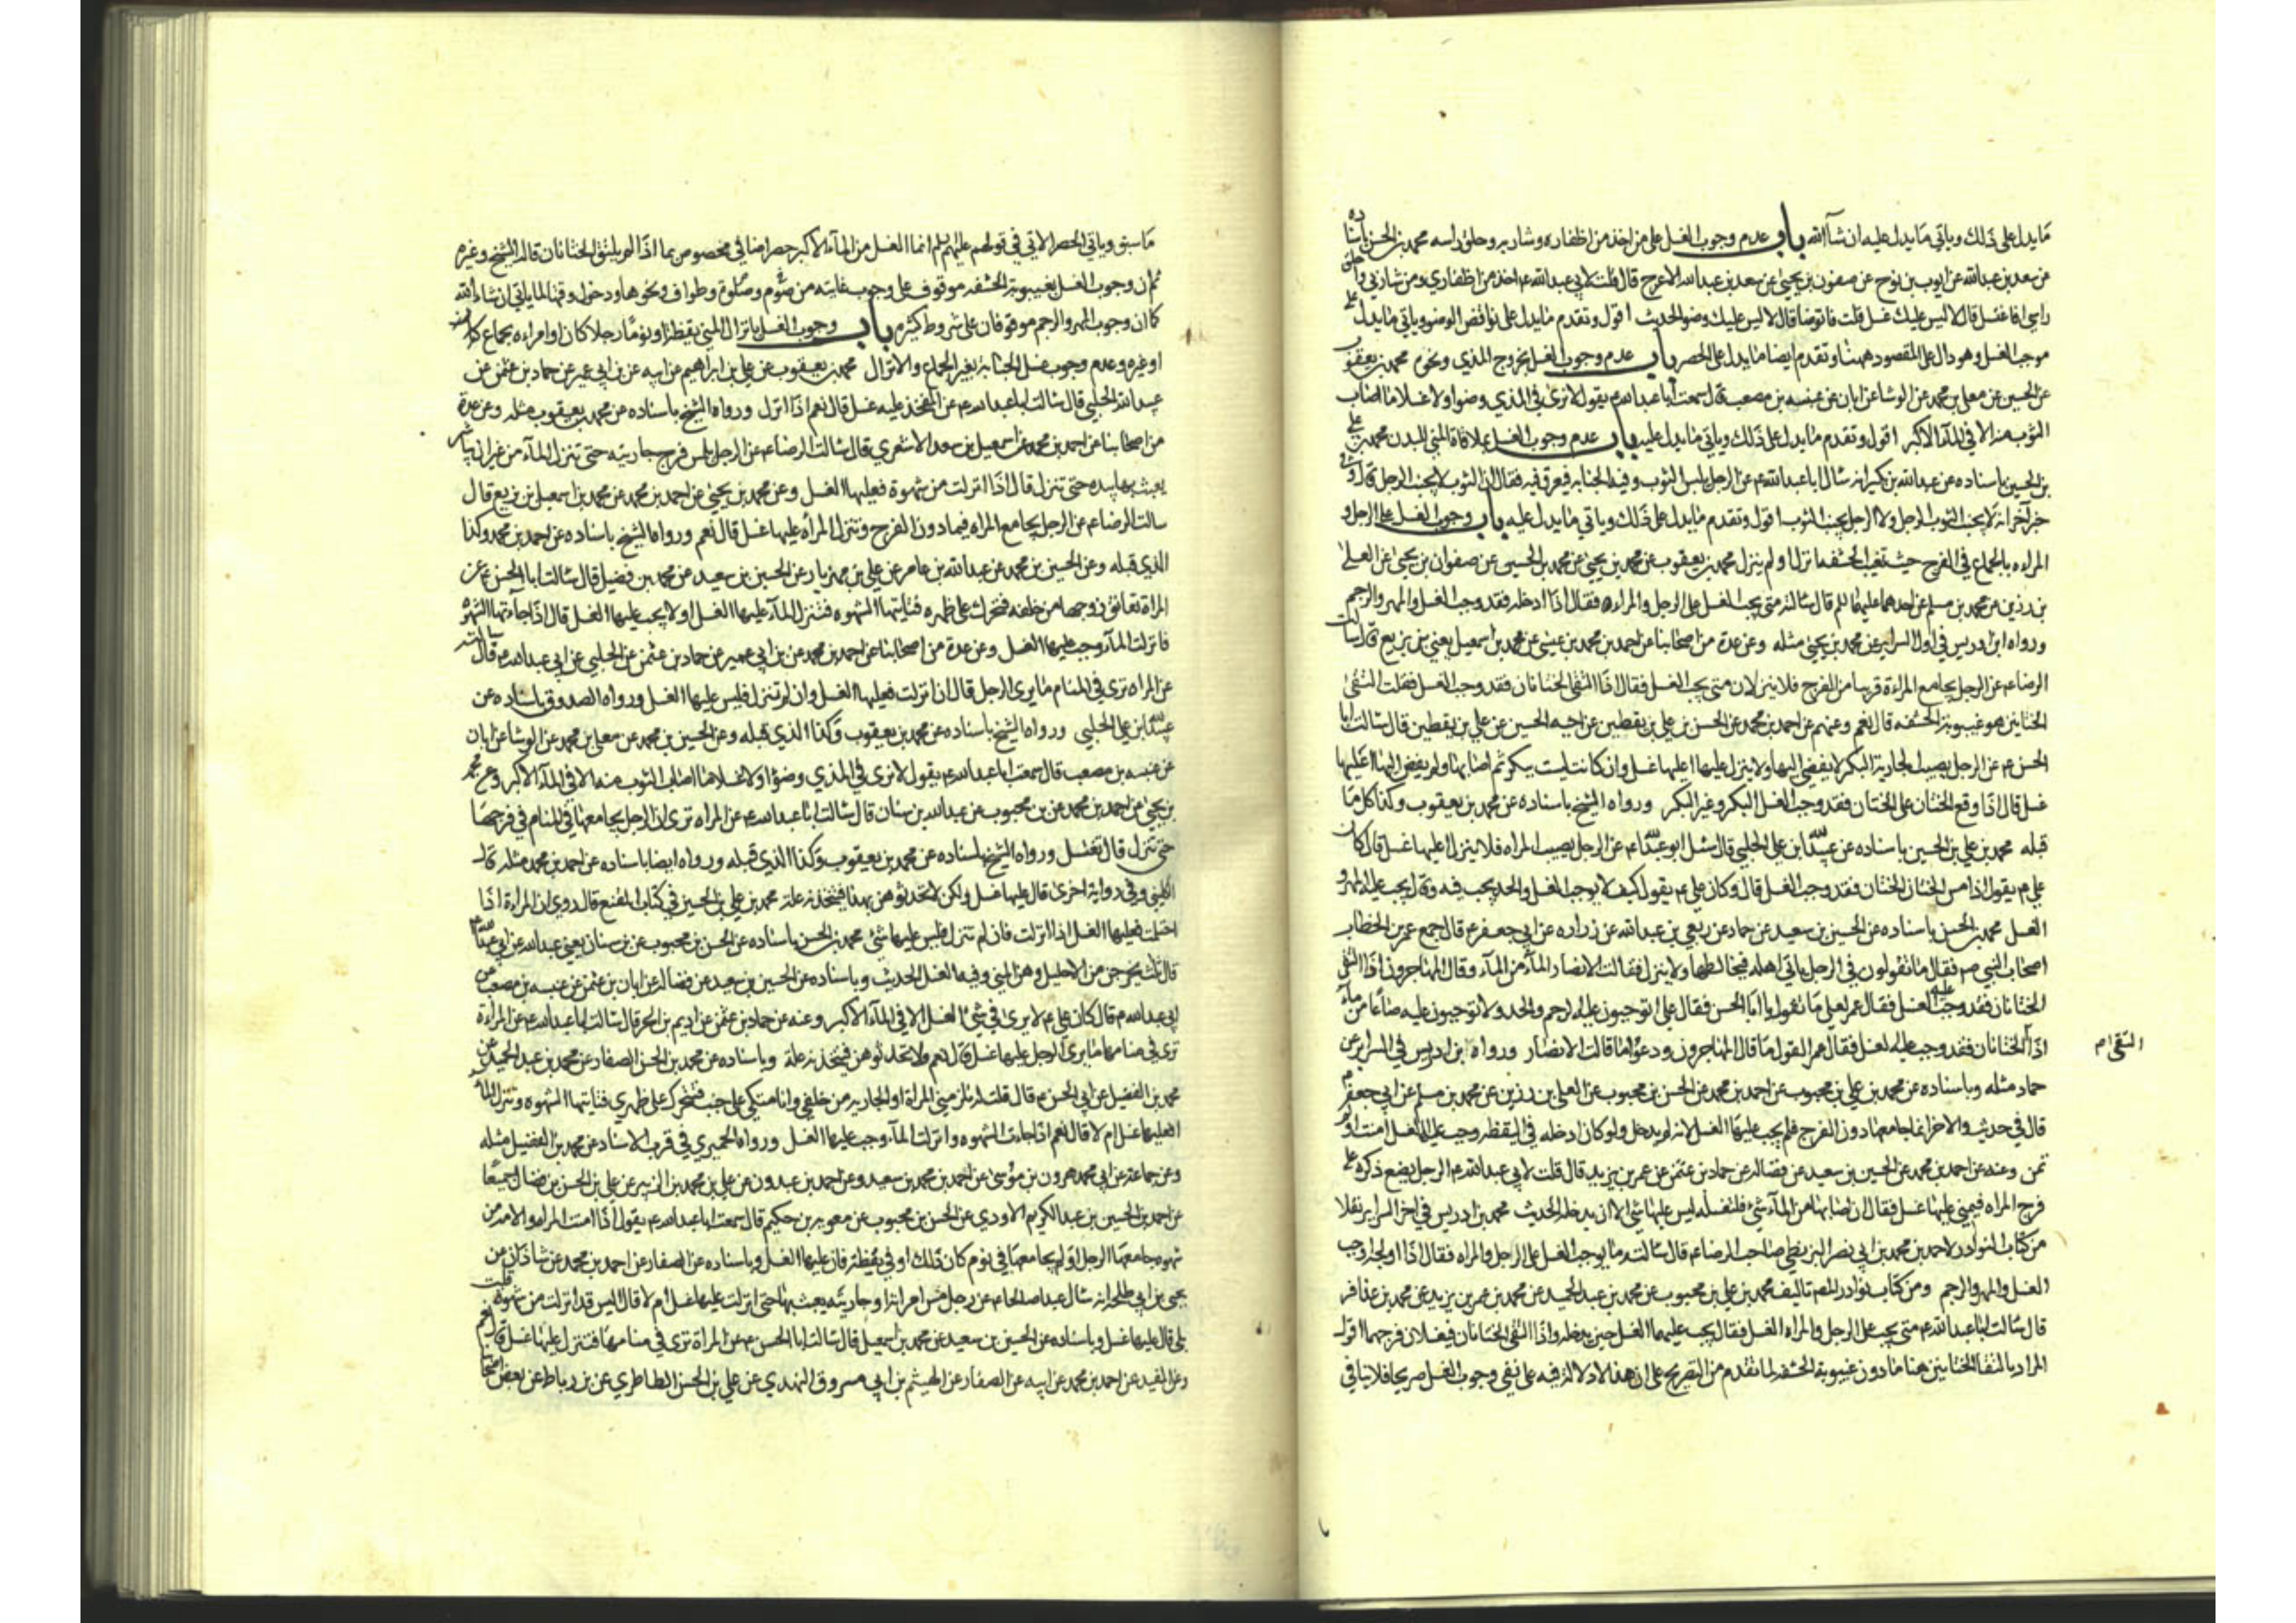 ما يدل على ذلك وياتي ما يدل عليه ان شآ الله باب عدم وجوب الغسل على من اخذ من اظفاره وشاربه وحلق راسه محمد بن الحسن باسناده
عن سعد بن عبدالله عن ايوب بن نوح عن صفون بن يحيى عن سعد بن عبدالله الاعرج قال قلت لابي عبدالله ع اخذ من اظفاري ومن شاربي واحلق
راسي افاغتسل قال لا ليس عليك غسل قلت فاتوضا قال لا ليس عليك وضو الحديث اقول وتقدم ما يدل على نواقض الوضو وياتي ما يدل على
موجب الغسل وهو دال على المقصود ههنا وتقدم ايضا ما يدل على الحصر باب عدم وجوب الغسل بخروج المذي ونحوه محمد بن يعقوب
عن الحسين عن معلى بن محمد عن الوشا عن ابان عن عنبسه بن مصعب قال سمعت ابا عبدالله ع يقول لا نرى في المذي وضوا ولا غسلا ما اصاب
الثوب منه الا في المآ الاكبر اقول وتقدم ما يدل على ذلك وياتي ما يدل عليه باب عدم وجوب الغسل بملاقاة المني للبدن محمد بن علي
بن الحسين باسناده عن عبدالله بن بكير انه سال ابا عبدالله ع عن الرجل يلبس الثوب وفيه الجنابه فيعرق فيه فقال ان الثوب لا يجنب الرجل قال وفي
خبر آخر انه لا يجنب الثوب الرجل ولا الرجل يجنب الثوب اقول وتقدم ما يدل على ذلك وياتي ما يدل عليه باب وجوب الغسل على الرجل و
المراه بالجماع في الفرج حيث تغيب الحشفه انزلا او لم ينزلا محمد بن يعقوب عن محمد بن يحيى عن محمد بن الحسين عن صفوان بن يحيى عن العلى
بن رزين عن محمد بن مسلم عن احدهما عليهما السلم قال سالته متى يجب الغسل على الرجل والمراه فقال اذا ادخله فقد وجب الغسل والمهر والرجم
ورواه ابن ادريس في اول السراير عن محمد بن يحيى مثله وعن عدة من اصحابنا عن احمد بن محمد بن عيسى عن محمد بن اسمعيل يعني بن بزيع قال سالت
الرضا ع عن الرجل يجامع المراءة قريبا من الفرج فلا ينزلان متى يجب الغسل فقال اذا التقى الختانان فقد وجب الغسل فقلت التقى
الختانين هو غيبوبة الحشفه قال نعم وعنهم عن احمد بن محمد عن الحسن بن علي بن يقطين عن اخيه الحسين عن علي بن يقطين قال سالت ابا
الحسن ع عن الرجل يصيب الجارية البكر لا يفضي اليها ولا ينزل عليها اعليها غسل وان كانت ليست ببكر ثم اصابها ولم يفض اليها اعليها
غسل قال اذا وقع الختان على الختان فقد وجب الغسل البكر وغير البكر ورواه الشيخ باسناده عن محمد بن يعقوب وكذا كل ما
قبله محمد بن علي بن الحسين باسناده عن عبيد الله ابن علي الحلبي قال سئل ابو عبدالله ع عن الرجل يصيب المراه فلا ينزل اعليها غسل قال كان
علي ع يقول اذا مس الختان الختان فقد وجب الغسل قال وكان علي ع يقول كيف لا يوجب الغسل والحد يجب فيه وقال يجب عليه المهر و
الغسل محمد بن الحسن باسناده عن الحسين بن سعيد عن حماد عن ربعي بن عبدالله عن زراره عن ابي جعفر ع قال جمع عمر بن الخطاب
اصحاب النبي ص فقال ما تقولون في الرجل ياتي اهله فيخالطها ولا ينزل فقالت الانصار المآ من المآء وقال المهاجرون اذا التقى
الختانان فقد وجب عليه الغسل فقال عمر لعلي ما تقول يا ابا الحسن فقال علي اتوجبون عليه الرجم والحد ولا توجبون عليه صاعا من مآء
اذا الختانان فقد وجب عليه لغسل فقال عمر القول ما قال المهاجرون ودعوا ما قالت الانصار ورواه بن ادريس في السراير عن
التقى ام
حماد مثله وباسناده عن محمد بن علي بن محبوب عن احمد بن محمد عن الحسن بن محبوب عن العلى بن رزين عن محمد بن مسلم عن ابي جعفر ع
قال في حديث والاخر انما جامعها دون الفرج فلم يجب عليها الغسل لانه لم يدخل ولو كان ادخله في اليقظه وجب عليها الغسل امنت او لم
تمن وعنه عن احمد بن محمد عن الحسين بن سعيد عن فضاله عن حماد بن عثمن عن عمر بن يزيد قال قلت لابي عبدالله ع الرجل يضع ذكره على
فرج المراه فيمني عليها غسل فقال ان اصابها من المآء شئ فلتغسله ليس عليها شئ الا ان يدخله الحديث محمد بن ادريس في اخر السراير نقلا
من كتاب النوادر لاحمد بن محمد بن ابي نصر البزنطي صاحب الرضا ع قال سالته ما يوجب الغسل على الرجل والمراه فقال اذا اولجه وجب
الغسل والمهر والرجم ومن كتاب نوادر المصنف تاليف محمد بن علي بن محبوب عن محمد بن عبد الحميد عن محمد بن عمر بن يزيد عن محمد بن عذافر
قال سالت ابا عبدالله ع متى يجب على الرجل والمراه الغسل فقال يجب عليهما الغسل حين يدخله واذا التقى الختانان فيغسلان فرجهما اقول
المراد بالتقا الختانين هنا ما دون غيبوبة الحشفه لما تقدم من التصريح على ان هذا لا دلالة فيه على نفي وجوب الغسل صريحا فلا ينافي
ما سبق وياتي الحصر الاتي في قولهم عليهم السلم انما الغسل من المآء الاكبر حصر اضافي مخصوص بما اذا لم يلتق الختانان قاله الشيخ وغيره
ثم ان وجوب الغسل بغيبوبة الحشفه موقوف على وجوب غايته من صوم وصلوة وطواف ونحوها ودخول وقتها لما ياتي ان شاء الله
كما ان وجوب المهر والرجم موقوفان على شروط كثيره باب وجوب الغسل بانزال المني يقظة او نوما رجلا كان او امراه بجماع كان
او غيره وعدم وجوب غسل الجنابة بغير الجماع والانزال محمد بن يعقوب عن علي بن ابراهيم عن ابيه عن بن ابي عمير عن حماد بن عثمن عن
عبيد الله الحلبي قال سالت ابا عبدالله ع عن المفخذ عليه غسل قال نعم اذا انزل ورواه الشيخ باسناده عن محمد بن يعقوب مثله وعن عدة
من اصحابنا عن احمد بن محمد عن اسمعيل بن سعد الاشعري قال سالت الرضا ع عن الرجل يلمس فرج جاريته حتى تنزل المآء من غير ان يباشر
يعبث بها بيده حتى تنزل قال اذا انزلت من شهوة فعليها الغسل وعن محمد بن يحيى عن احمد بن محمد عن محمد بن اسمعيل بن بزيع قال
سالت الرضا ع عن الرجل يجامع المراه فيما دون الفرج وتنزل المرأه عليها غسل قال نعم ورواه الشيخ باسناده عن احمد بن محمد وكذا
الذي قبله وعن الحسين بن محمد عن عبدالله بن عامر عن علي بن مهزيار عن الحسين بن سعيد عن محمد بن فضيل قال سالت ابا الحسن ع عن
المراة تعانق زوجها من خلفه فتحرك على ظهره فتاتيها الشهوه فتنزل المآء عليها الغسل او لا يجب عليها الغسل قال اذا جآءتها الشهوه
فانزلت المآء وجب عليها الغسل وعن عدة من اصحابنا عن احمد بن محمد عن بن ابي عمير عن حماد بن عثمن عن الحلبي عن ابي عبدالله ع قال سالته
عن المراه ترى في المنام ما يرى الرجل قال ان انزلت فعليها الغسل وان لم تنزل فليس عليها الغسل ورواه الصدوق باسناده عن
عبيد الله ابن علي الحلبي ورواه الشيخ باسناده عن محمد بن يعقوب وكذا الذي قبله وعن الحسين بن محمد عن معلى بن محمد عن الوشا عن ابان
عن عنبسه بن مصعب قال سمعت ابا عبدالله ع يقول لا نرى في المذي وضوا ولا غسلا ما اصاب الثوب منه الا في المآ الاكبر وعن محمد
بن يحيى عن احمد بن محمد عن بن محبوب عن عبدالله بن سنان قال سالت ابا عبدالله ع عن المراه ترى ان الرجل يجامعها في المنام في فرجها
حتى تنزل قال تغتسل ورواه الشيخ باسناده عن محمد بن يعقوب وكذا الذي قبله ورواه ايضا باسناده عن احمد بن محمد مثله قال
الكليني وفي رواية اخرى قال عليها غسل ولكن لا تحدثوهن بهذا فيتخذنه علة محمد بن علي بن الحسين في كتاب المقنع قال روي ان المراءة اذا
احتلمت فعليها الغسل اذا انزلت فان لم تنزل فليس عليها شئ محمد بن الحسن باسناده عن الحسن بن محبوب عن بن سنان يعني عبدالله عن ابي عبدالله ع
قال ثلث يخرجن من الاحليل وهن المني وفيه الغسل الحديث وباسناده عن الحسين بن سعيد عن فضاله عن ابان بن عثمن عن عنبسه بن مصعب عن
ابي عبدالله ع قال كان علي ع لا يرى في شئ الغسل الا في المآء الاكبر وعنه عن حماد بن عثمن عن اديم بن الحر قال سالت ابا عبدالله ع عن المراءة
ترى في منامها ما يرى الرجل عليها غسل قال نعم ولا تحدثوهن فيتخذنه علة وباسناده عن محمد بن الحسن الصفار عن محمد بن عبد الحميد عن
محمد بن الفضيل عن ابي الحسن ع قال قلت له تلزمني المراة او الجاريه من خلفي وانا متكي على جنب فتتحرك على ظهري فتاتيها الشهوه وتنزل المآء
افعليها غسل ام لا قال نعم اذا جاءت الشهوه وانزلت المآء وجب عليها الغسل ورواه الحميري في قرب الاسناد عن محمد بن الفضيل مثله
وعن جماعة عن ابي محمد هرون بن موسى عن احمد بن محمد بن سعيد وعن احمد بن عبدون عن علي بن محمد بن الزبير عن علي بن الحسن بن فضال جميعا
عن احمد بن الحسين بن عبد الكريم الاودي عن الحسن بن محبوب عن معويه بن حكيم قال سمعت ابا عبدالله ع يقول اذا امنت المراه والامة من
شهوه جامعها الرجل او لم يجامعها في نوم كان ذلك او في يقظة فان عليها الغسل وباسناده عن الصفار عن احمد بن محمد عن شاذان عن
يحيى بن ابي طلحه انه سال عبدا صالحا ع عن رجل مس امراته او جاريته يعبث بها حتى انزلت عليها غسل ام لا قال اليس قد انزلت من شهوه قلت
بلى قال عليها غسل وباسناده عن الحسين بن سعيد عن محمد بن اسمعيل قال سالت ابا الحسن ع عن المراة ترى في منامها فتنزل عليها غسل قال نعم
وعن المفيد عن احمد بن محمد عن ابيه عن الصفار عن الهيثم بن ابي مسروق النهدي عن علي بن الحسن الطاطري عن بن رباط عن بعض اصحابنا